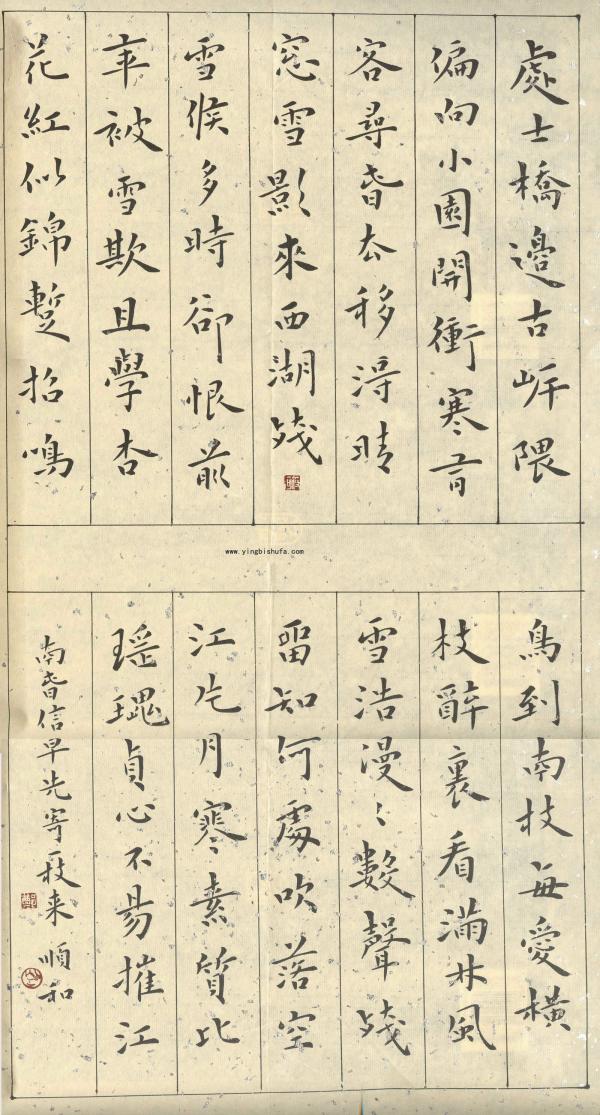 處士橋邊古岸隈
偏向小園開衝寒有
客尋春去移得晴
窓雪影來西湖殘
雪候多時卻恨前
年被雪欺且學杏
花紅似錦蹔招鳴
www.yingbishufa.com
鳥到南枝每愛橫
枝醉裏看滿林風
雪浩漫〻數聲殘
留知何處吹落空
江片月寒素質比
瑤瑰貞心不易摧江
南春信早先寄一枝来 順和